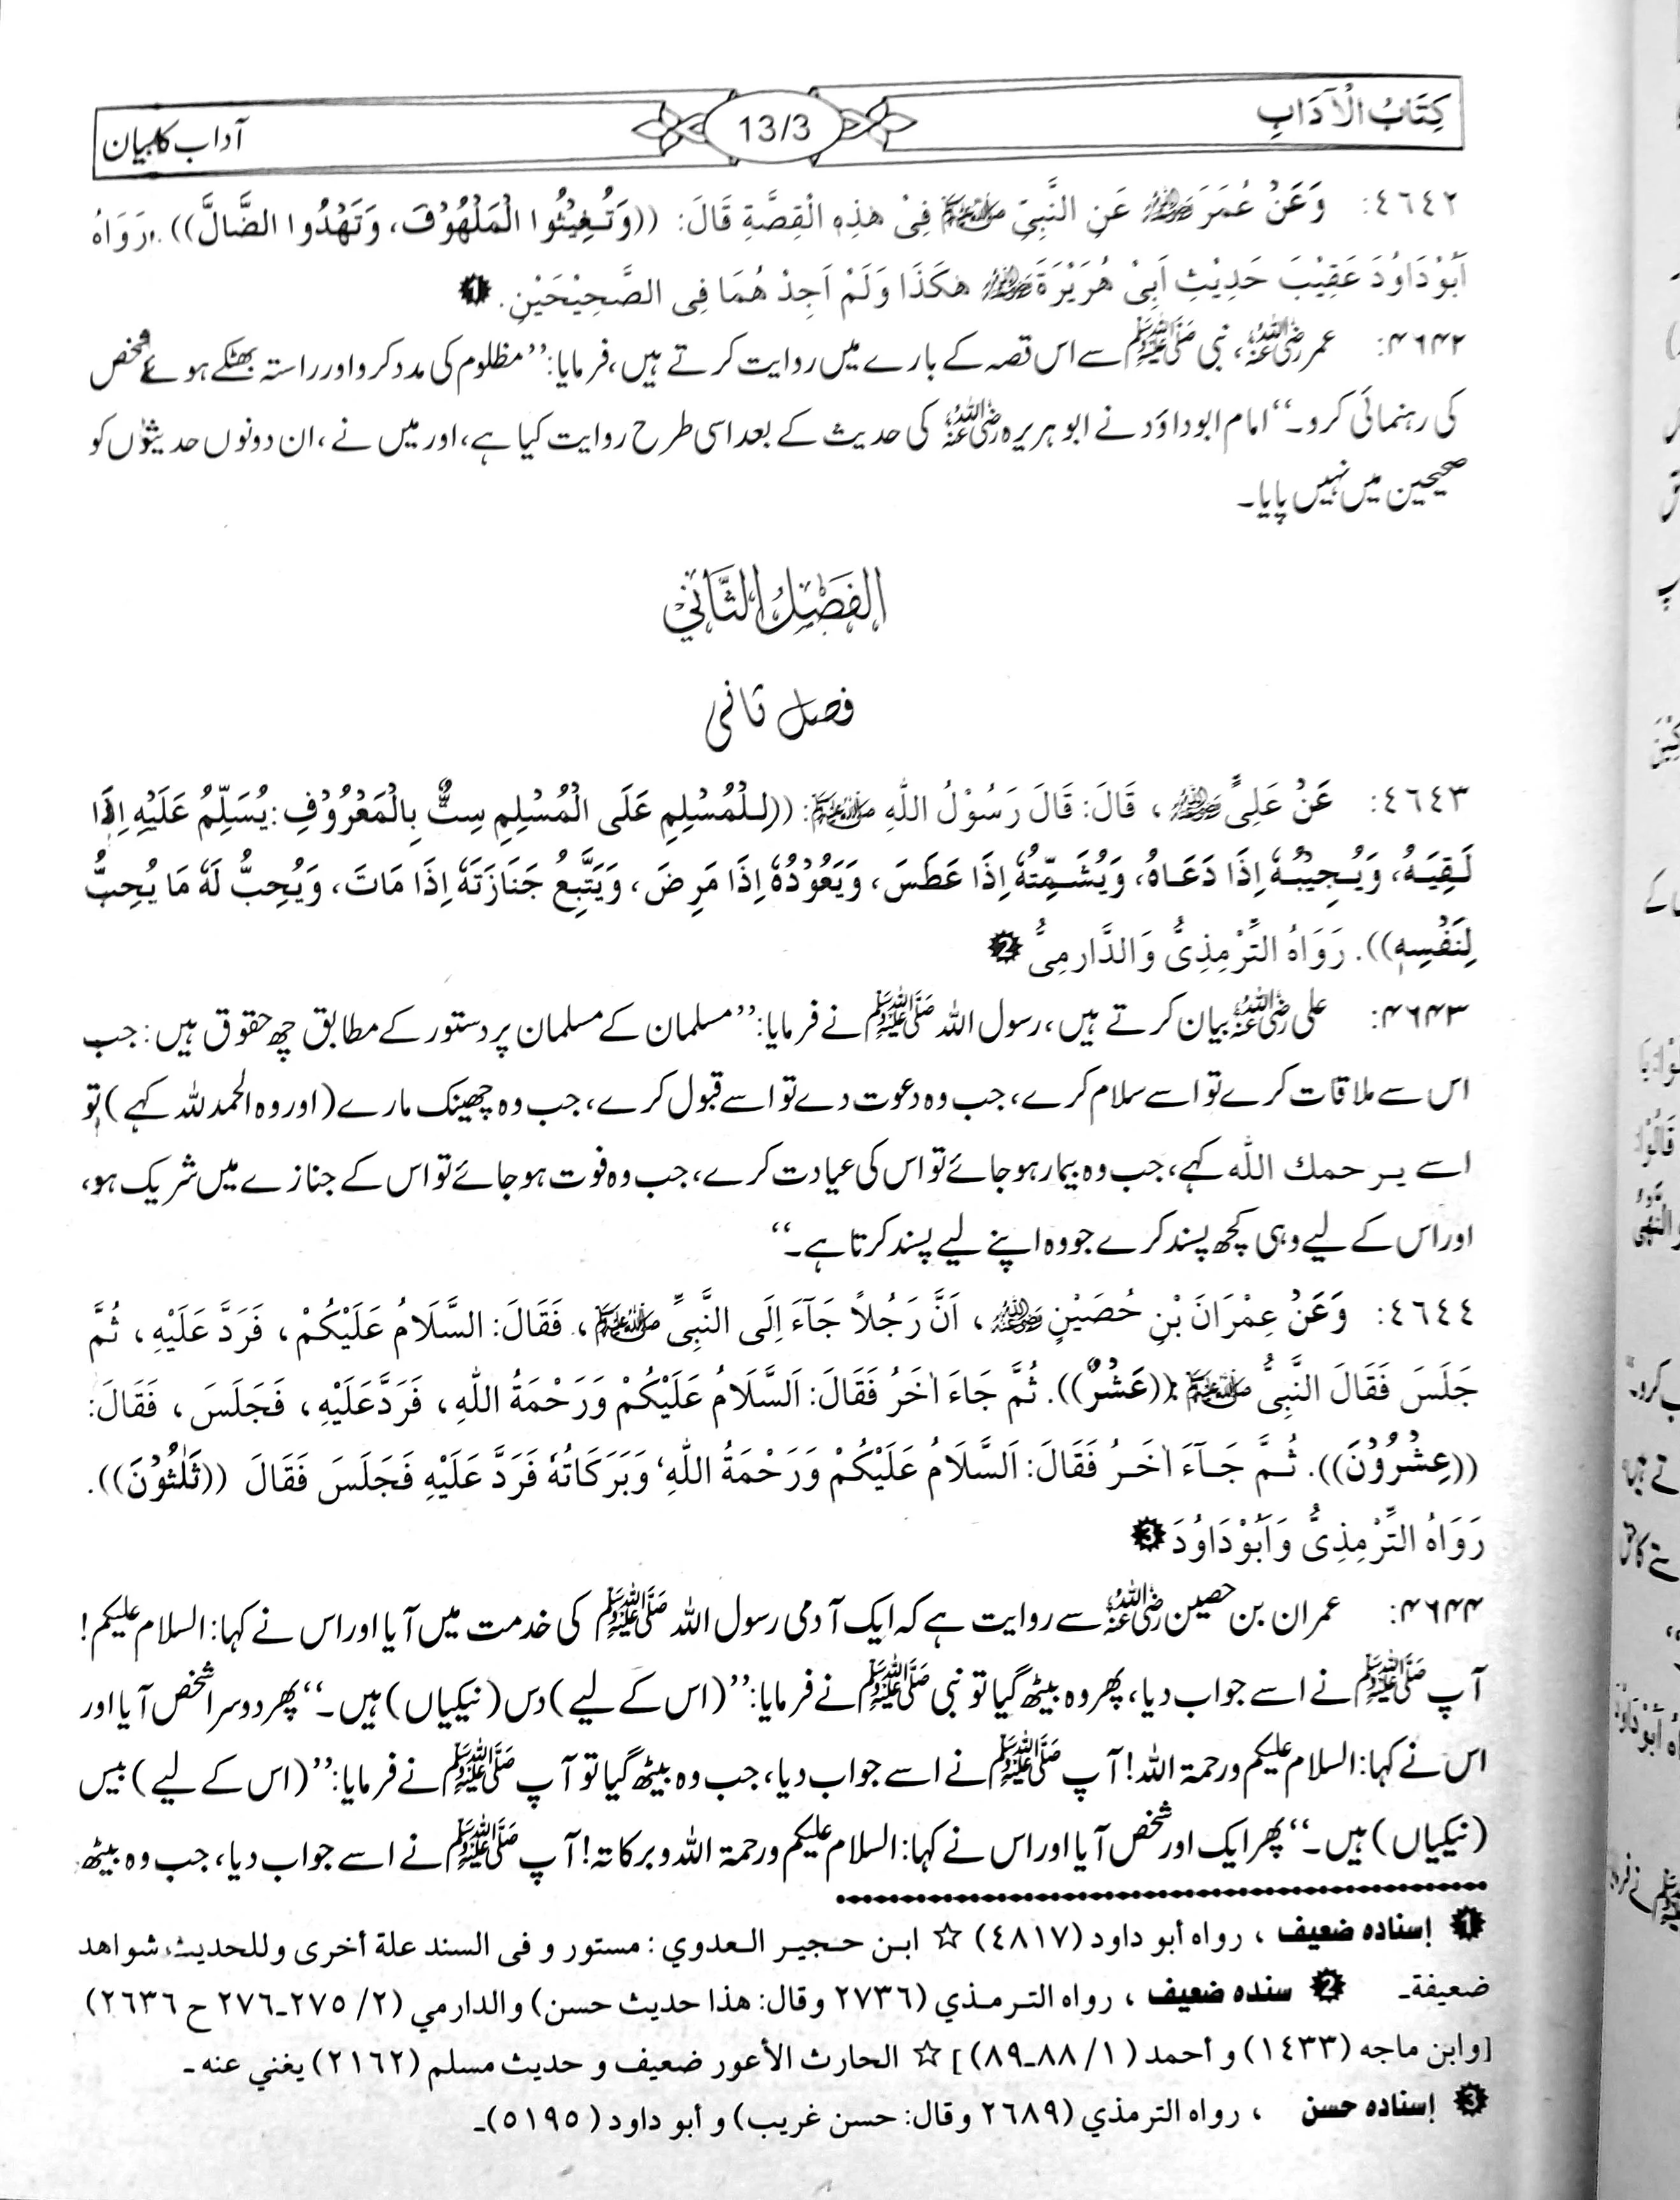 كِتَابُ الْآدَابِ 13/3 آداب کا بیان
٤٦٤٢: وَعَنْ عُمَرَ رضی اللہ عنہ عَنِ النَّبِيِّ ﷺ فِیْ هٰذِهِ الْقِصَّةِ قَالَ: ((وَتُغِيْثُوا الْمَلْهُوْفَ، وَتَهْدُوا الضَّالَّ)). رَوَاهُ
أَبُوْ دَاوُدَ عَقِيْبَ حَدِيْثِ اَبِیْ هُرَيْرَةَ رضی اللہ عنہ هٰكَذَا وَلَمْ اَجِدْ هُمَا فِی الصَّحِيْحَيْنِ. ❶
۴۶۴۲: عمر رضی اللہ عنہ، نبی ﷺ سے اس قصہ کے بارے میں روایت کرتے ہیں، فرمایا: ’’مظلوم کی مدد کرو اور راستہ بھٹکے ہوئے شخص
کی رہنمائی کرو۔‘‘ امام ابوداؤد نے ابو ہریرہ رضی اللہ عنہ کی حدیث کے بعد اسی طرح روایت کیا ہے، اور میں نے، ان دونوں حدیثوں کو
صحیحین میں نہیں پایا۔
الفَصْلُ الثَّانِيْ
فصل ثانی
٤٦٤٣: عَنْ عَلِيٍّ رضی اللہ عنہ، قَالَ: قَالَ رَسُوْلُ اللهِ ﷺ: ((لِلْمُسْلِمِ عَلَى الْمُسْلِمِ سِتٌّ بِالْمَعْرُوْفِ: يُسَلِّمُ عَلَيْهِ اِذَا
لَقِيَهُ، وَيُجِيْبُهُ اِذَا دَعَاهُ، وَيُشَمِّتُهُ اِذَا عَطَسَ، وَيَعُوْدُهُ اِذَا مَرِضَ، وَيَتَّبِعُ جَنَازَتَهُ اِذَا مَاتَ، وَيُحِبُّ لَهُ مَا يُحِبُّ
لِنَفْسِهِ)). رَوَاهُ التِّرْمِذِیُّ وَالدَّارِمِیُّ ❷
۴۶۴۳: علی رضی اللہ عنہ بیان کرتے ہیں، رسول اللہ ﷺ نے فرمایا: ’’مسلمان کے مسلمان پر دستور کے مطابق چھ حقوق ہیں: جب
اس سے ملاقات کرے تو اسے سلام کرے، جب وہ دعوت دے تو اسے قبول کرے، جب وہ چھینک مارے (اور وہ الحمد للہ کہے) تو
اسے یرحمك الله کہے، جب وہ بیمار ہو جائے تو اس کی عیادت کرے، جب وہ فوت ہو جائے تو اس کے جنازے میں شریک ہو،
اور اس کے لیے وہی کچھ پسند کرے جو وہ اپنے لیے پسند کرتا ہے۔‘‘
٤٦٤٤: وَعَنْ عِمْرَانَ بْنِ حُصَيْنٍ رضی اللہ عنہ، اَنَّ رَجُلاً جَآءَ اِلَى النَّبِيِّ ﷺ، فَقَالَ: السَّلَامُ عَلَيْكُمْ، فَرَدَّ عَلَيْهِ، ثُمَّ
جَلَسَ فَقَالَ النَّبِيُّ ﷺ: ((عَشْرٌ)). ثُمَّ جَاءَ اٰخَرُ فَقَالَ: اَلسَّلَامُ عَلَيْكُمْ وَرَحْمَةُ اللهِ، فَرَدَّ عَلَيْهِ، فَجَلَسَ، فَقَالَ:
((عِشْرُوْنَ)). ثُمَّ جَآءَ اٰخَرُ فَقَالَ: اَلسَّلَامُ عَلَيْكُمْ وَرَحْمَةُ اللهِ وَبَرَكَاتُهُ فَرَدَّ عَلَيْهِ فَجَلَسَ فَقَالَ ((ثَلٰثُوْنَ)).
رَوَاهُ التِّرْمِذِیُّ وَاَبُوْ دَاوُدَ ❸
۴۶۴۴: عمران بن حصین رضی اللہ عنہ سے روایت ہے کہ ایک آدمی رسول اللہ ﷺ کی خدمت میں آیا اور اس نے کہا: السلام علیکم!
آپ ﷺ نے اسے جواب دیا، پھر وہ بیٹھ گیا تو نبی ﷺ نے فرمایا: ’’(اس کے لیے) دس (نیکیاں) ہیں۔‘‘ پھر دوسرا شخص آیا اور
اس نے کہا: السلام علیکم ورحمۃ اللہ! آپ ﷺ نے اسے جواب دیا، جب وہ بیٹھ گیا تو آپ ﷺ نے فرمایا: ’’(اس کے لیے) بیس
(نیکیاں) ہیں۔‘‘ پھر ایک اور شخص آیا اور اس نے کہا: السلام علیکم ورحمۃ اللہ وبرکاتہ! آپ ﷺ نے اسے جواب دیا، جب وہ بیٹھ
❶ إسناده ضعيف، رواه أبو داود (٤٨١٧) ☆ ابن حجير العدوي: مستور و فى السند علة أخرى وللحديث شواهد
ضعيفة۔ ❷ سنده ضعيف، رواه الترمذي (٢٧٣٦ وقال: هذا حديث حسن) والدارمي (٢/ ٢٧٥۔٢٧٦ ح ٢٦٣٦)
[وابن ماجه (١٤٣٣) و أحمد (١/ ٨٨۔٨٩)] ☆ الحارث الأعور ضعيف و حديث مسلم (٢١٦٢) يغني عنه۔
❸ إسناده حسن، رواه الترمذي (٢٦٨٩ وقال: حسن غريب) و أبو داود (٥١٩٥)۔